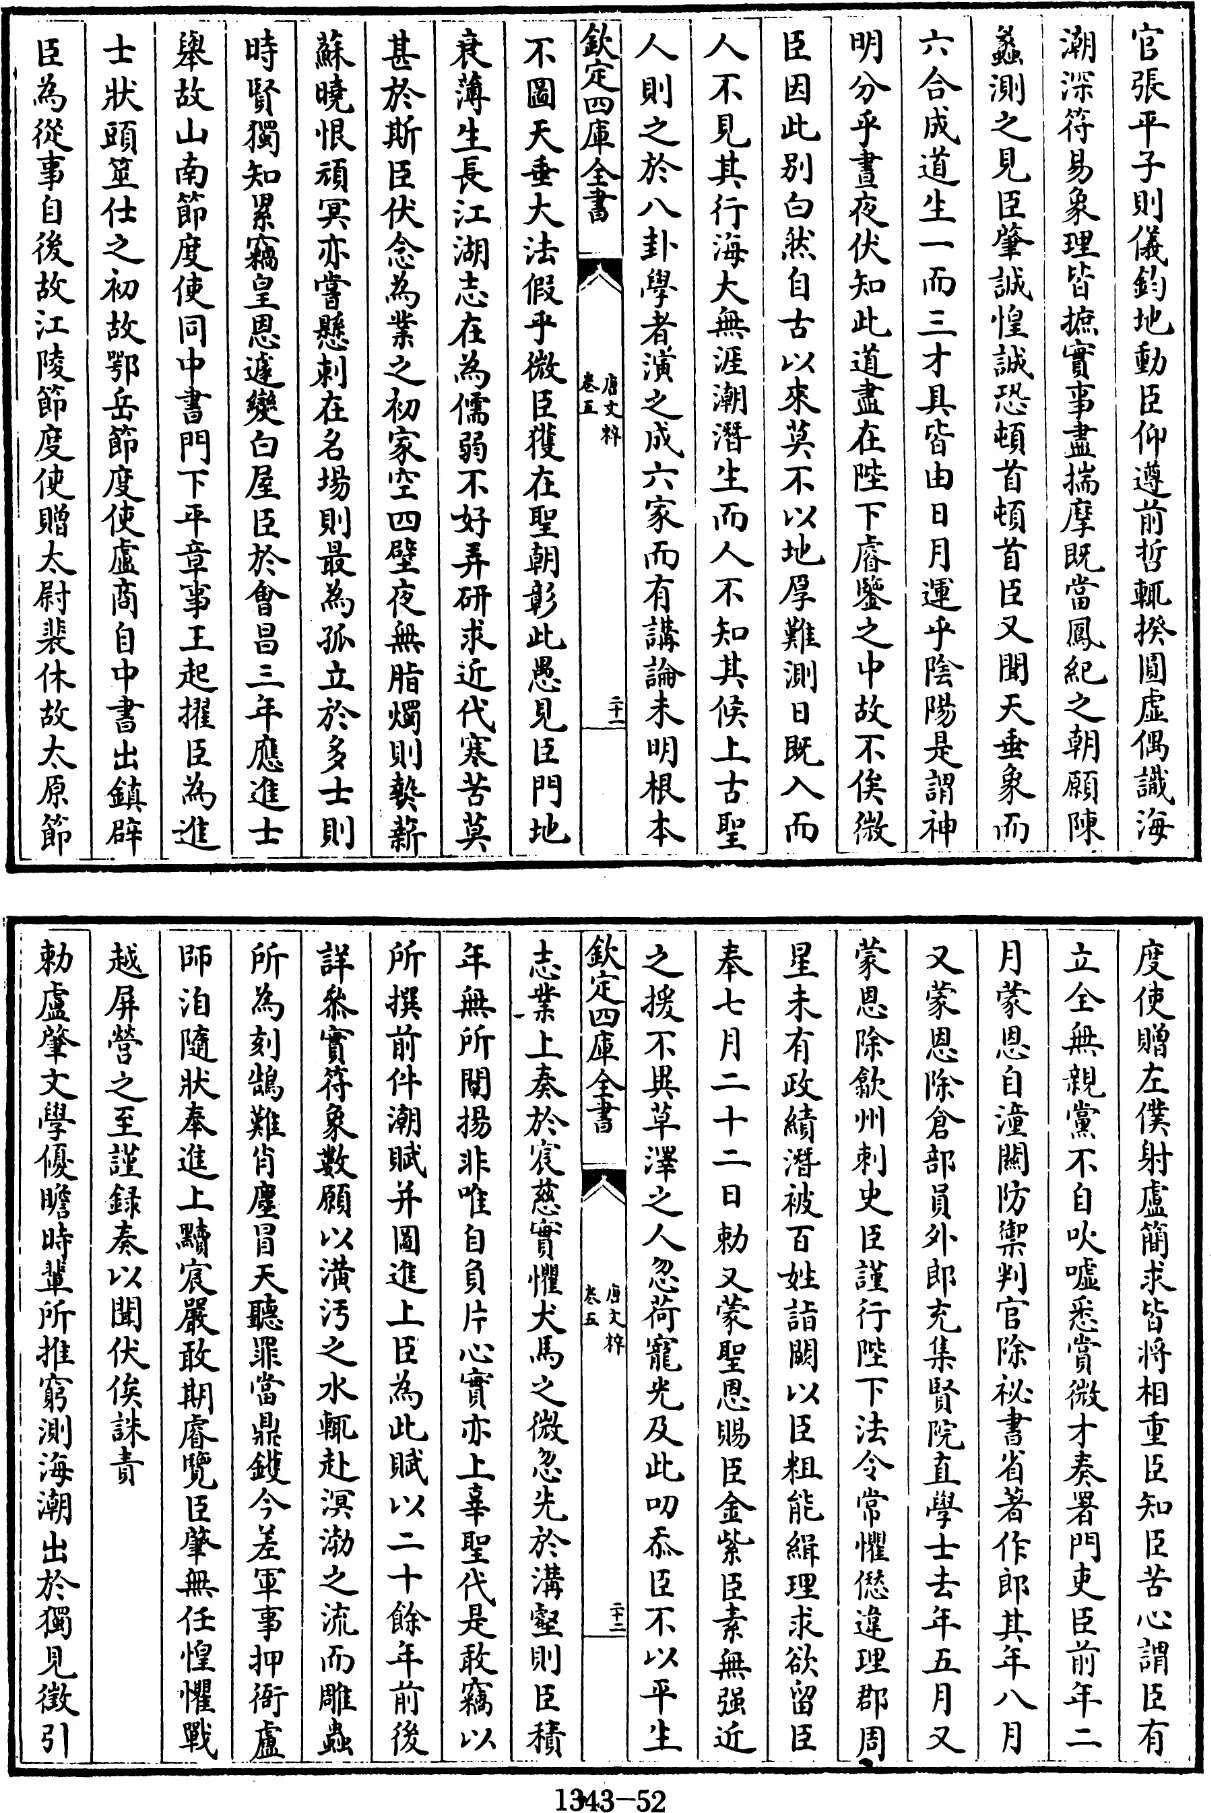 官張平子則儀鈞地動臣仰遵前哲輒揆圓虛偶識海
潮深符易象理皆摭實事盡揣摩既當鳳紀之朝願陳
蠡測之見臣肇誠惶誠恐頓首頓首臣又聞天垂象而
六合成道生一而三才具皆由日月運乎陰陽是謂神
明分乎晝夜伏知此道盡在陛下睿鑒之中故不俟微
臣因此別白然自古以來莫不以地厚難測日既入而
人不見其行海大無涯潮潛生而人不知其候上古聖
人則之於八卦學者演之成六家而有講論未明根本
欽定四庫全書
唐文粹
卷五
二十一
不圖天垂大法假乎微臣獲在聖朝彰此愚見臣門地
衰薄生長江湖志在為儒弱不好弄研求近代寒苦莫
甚於斯臣伏念為業之初家空四壁夜無脂燭則爇薪
蘇曉恨頑冥亦嘗懸刺在名場則最為孤立於多士則
時賢獨知累竊皇恩遽變白屋臣於會昌三年應進士
舉故山南節度使同中書門下平章事王起擢臣為進
士狀頭筮仕之初故鄂岳節度使盧商自中書出鎮辟
臣為從事自後故江陵節度使贈太尉裴休故太原節
度使贈左僕射盧簡求皆將相重臣知臣苦心謂臣有
立全無親黨不自吹噓悉賞微才奏署門吏臣前年二
月蒙恩自潼關防禦判官除祕書省著作郎其年八月
又蒙恩除倉部員外郎充集賢院直學士去年五月又
蒙恩除歙州刺史臣謹行陛下法令常懼愆違理郡周
星未有政績潛被百姓詣闕以臣粗能緝理求欲留臣
奉七月二十二日勅又蒙聖恩賜臣金紫臣素無强近
之援不異草澤之人忽荷寵光及此叨忝臣不以平生
欽定四庫全書
唐文粹
卷五
二十二
志業上奏於宸慈實懼犬馬之微忽先於溝壑則臣積
年無所闡揚非唯自負片心實亦上辜聖代是敢竊以
所撰前件潮賦并圖進上臣為此賦以二十餘年前後
詳參實符象數願以潢污之水輒赴溟渤之流而雕蟲
所為刻鵠難肖塵冒天聽罪當鼎鑊今差軍事押衙盧
師洎隨狀奉進上黷宸嚴敢期睿覽臣肇無任惶懼戰
越屏營之至謹録奏以聞伏俟誅責
勅盧肇文學優贍時輩所推窮測海潮出於獨見徵引
1343-52